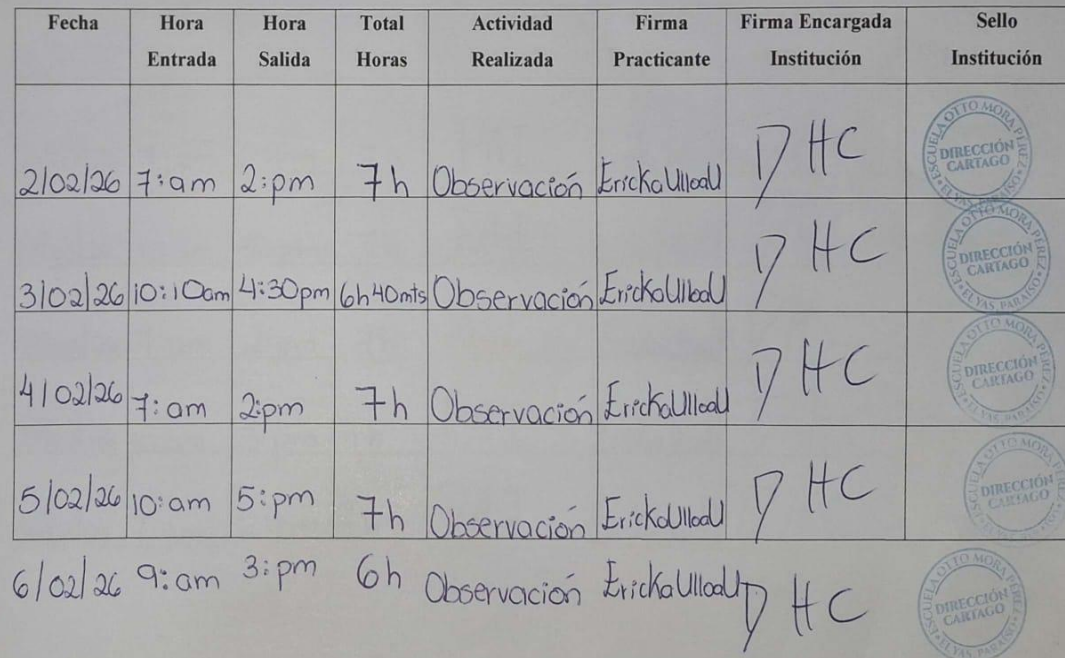 Fecha Hora Hora Total Actividad Firma Firma Encargada Sello
Entrada Salida Horas Realizada Practicante Institución Institución
2/02/26 7:am 2:pm 7h Observación Ericka Ulloa U DHC
ESCUELA OTTO MORA PEREZ DIRECCIÓN CARTAGO ELYAS PARAISO
3/02/26 10:10am 4:30pm 6h40mts Observación Ericka Ulloa U DHC
ESCUELA OTTO MORA PEREZ DIRECCIÓN CARTAGO ELYAS PARAISO
4/02/26 7:am 2:pm 7h Observación Ericka Ulloa U DHC
ESCUELA OTTO MORA PEREZ DIRECCIÓN CARTAGO ELYAS PARAISO
5/02/26 10:am 5:pm 7h Observación Ericka Ulloa U DHC
OTTO MORA DIRECCIÓN CARTAGO
6/02/26 9:am 3:pm 6h Observación Ericka Ulloa U DHC
ESCUELA OTTO MORA DIRECCIÓN CARTAGO ELYAS PARAISO